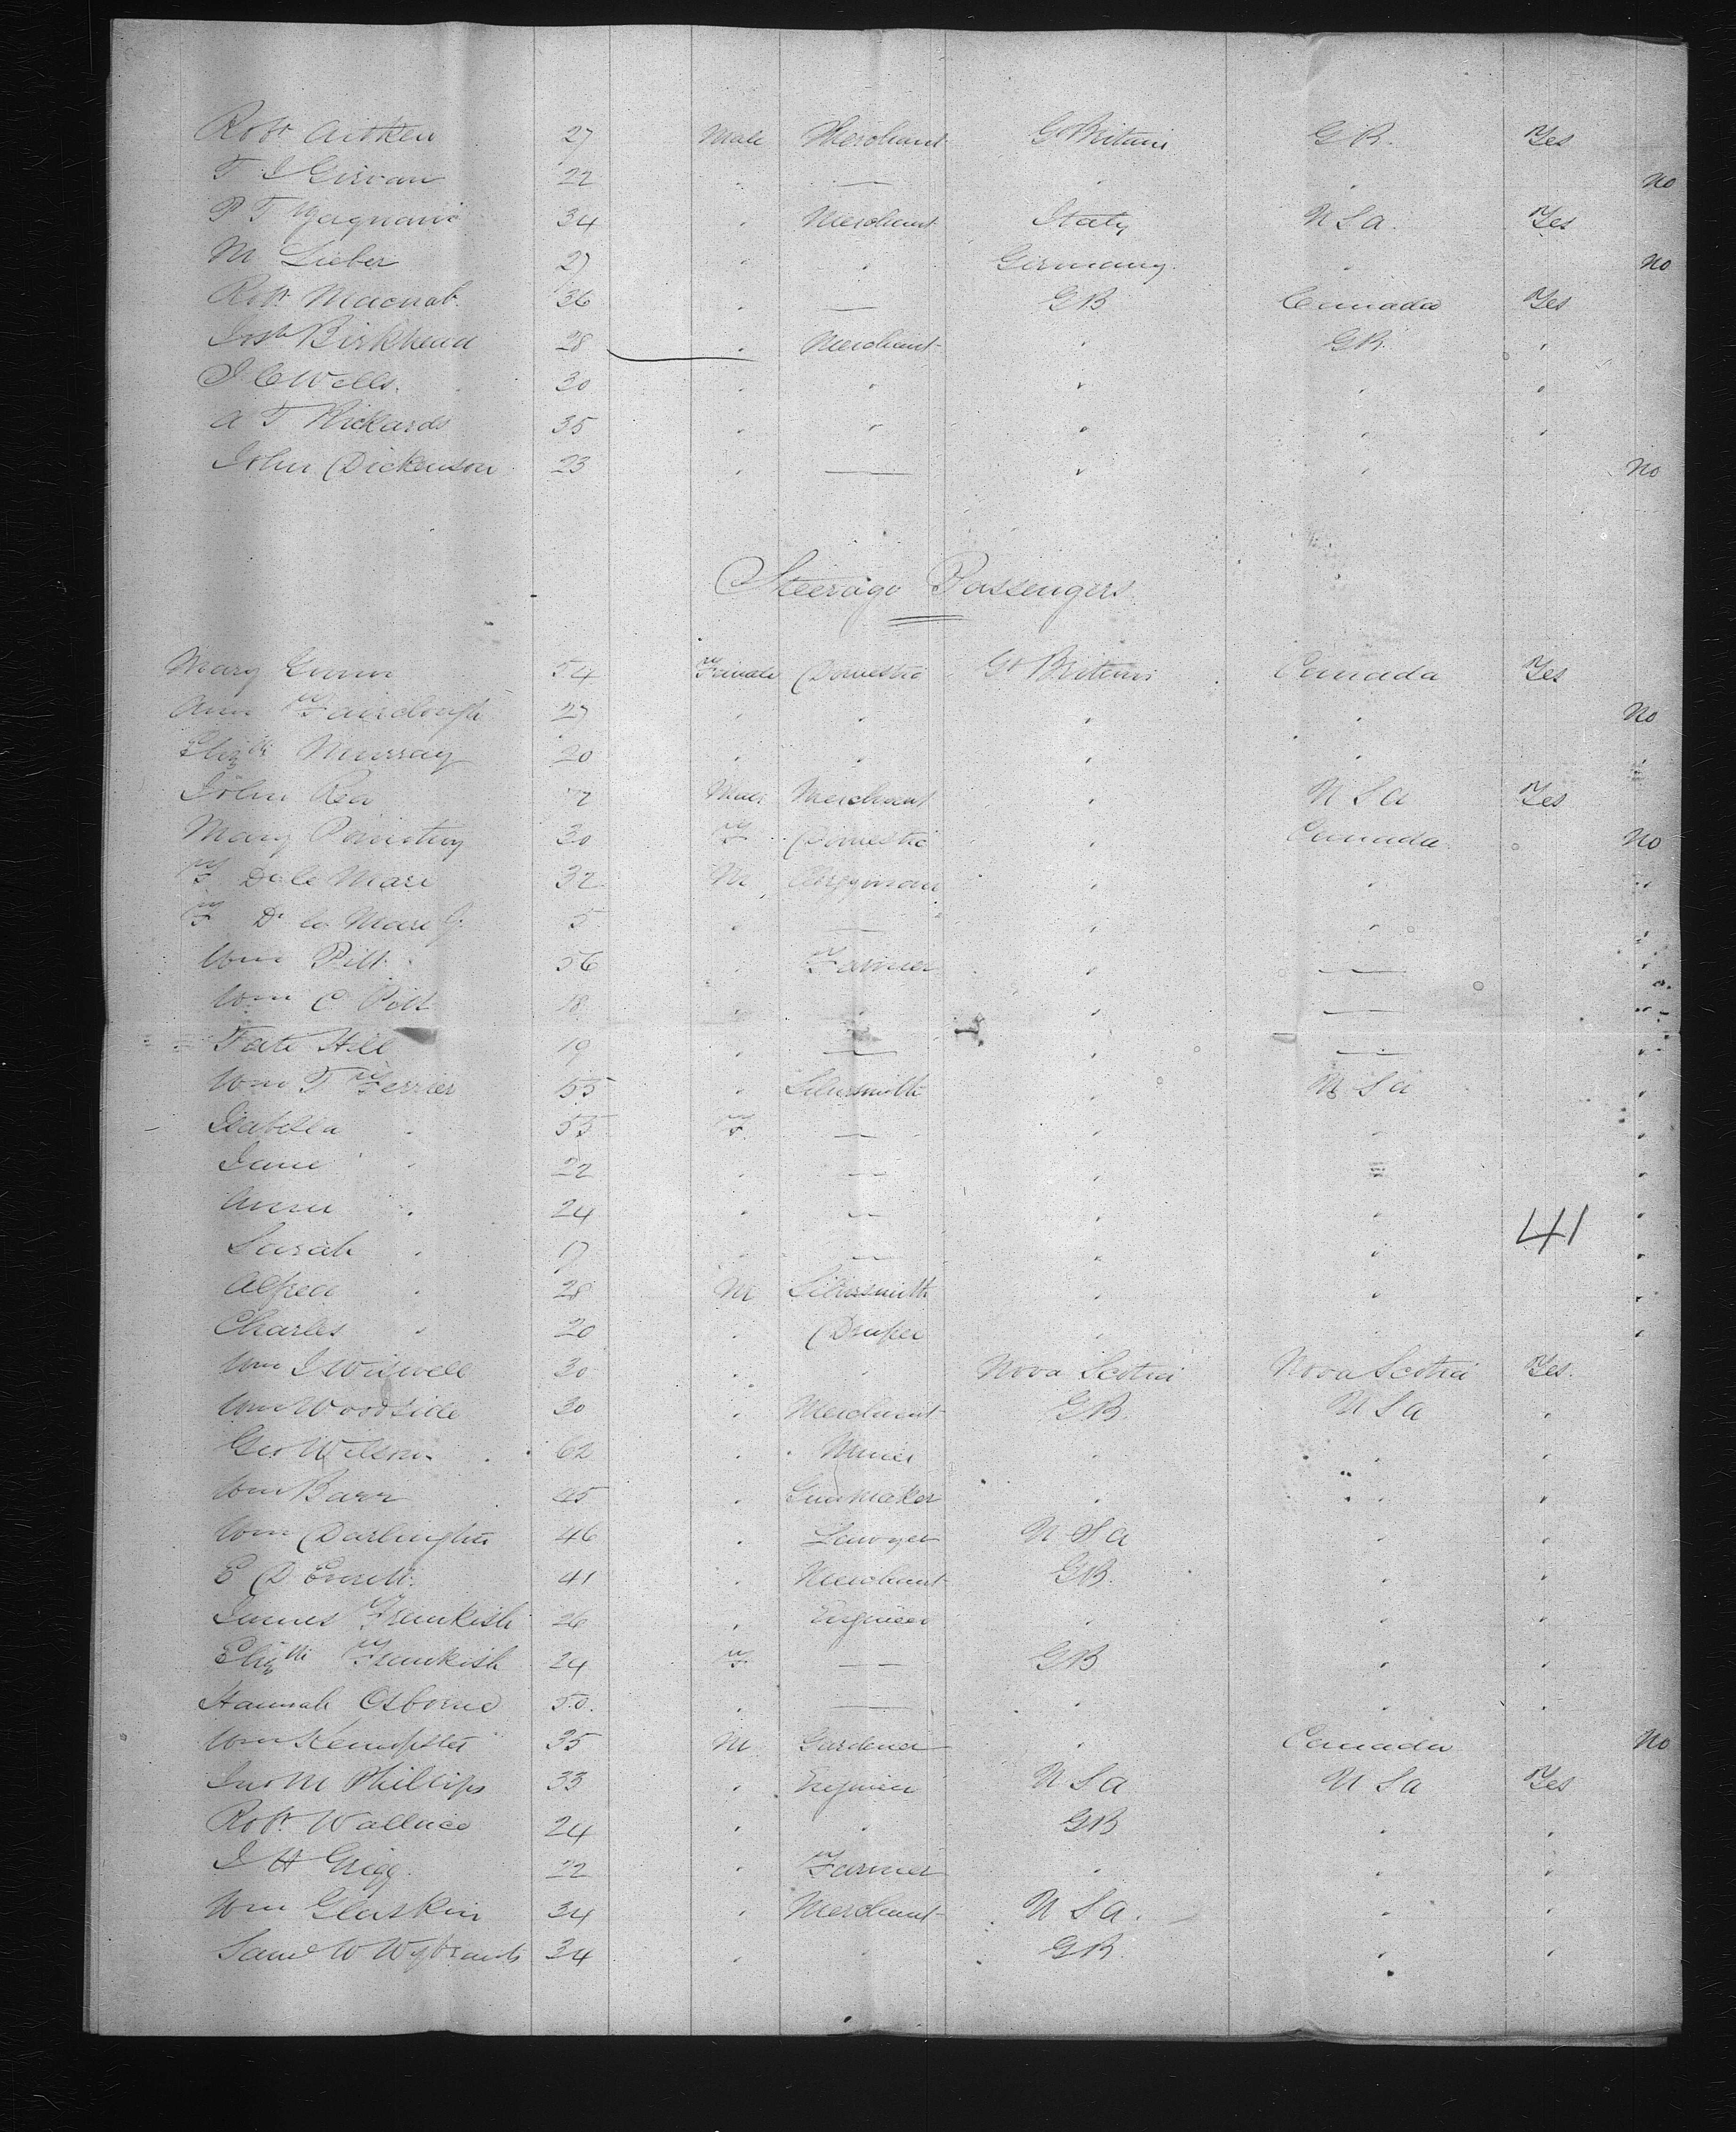 Robt Aitken 27 Male Merchant Gt Britain G B. Yes
T J Girvan 22 " — " " No
P T 34 " Merchant Italy U S a. Yes
M Lieber 27 " " Germany " No
Robt Macnab 36 " — G B Canada Yes
Josh Birkhead 28 " Merchant " G B. "
J C Wells. 30 " " " " "
A T Rickards 35 " " " " "
John Dickenson 23 " — " " No
Steerage Passengers
Mary Gunn 54 Female Domestic Gt Britain Canada Yes
Ann Fairclough 27 " " " " No
Elizth Murray 20 " " " " "
John Rea Male Merchant " U S a Yes
Mary 30 F Domestic " Canada No
F De la Mare 32 M Clergyman " " "
F De la Mare J. 5 " — " " "
Wm Pitt 56 " Farmer " — "
Wm C Pitt 18 " " " — "
Hill 19 " — " — "
Wm T Ferrier 55 " Silversmith " U S a "
Isabella " 55 F — " " "
Jane " 22 " — " " "
Annie " 24 " — " " "
41
Sarah " 17 " — " " "
Alfred " 28 M Silversmith " " "
Charles " 20 " Draper " " "
Wm J Wiswell 30 " " Nova Scotia Nova Scotia Yes.
Wm Woodside 30 " Merchant G B. U S a "
Geo Wilson 62 " Miner " " "
Wm Barr 45 " Gun Maker " " "
Wm Darlington 46 " Lawyer U S a " "
E D Everett. 41 " Merchant G B. " "
James Frankish 26 " Engineer " " "
Elizth Frankish 24 F — G B " "
Hannah Osborne 50. " — " " "
Wm Kempster 35 M Gardener " Canada No
Jno M Phillips 33 " Engineer U S a U S a Yes
Robt Wallace 24 " " G B " "
J H Grigg. 22 " Farmer " " "
Wm Glaskin 34 " Merchant U S a. " "
Saml W Wybrants 34 " " G B. " "